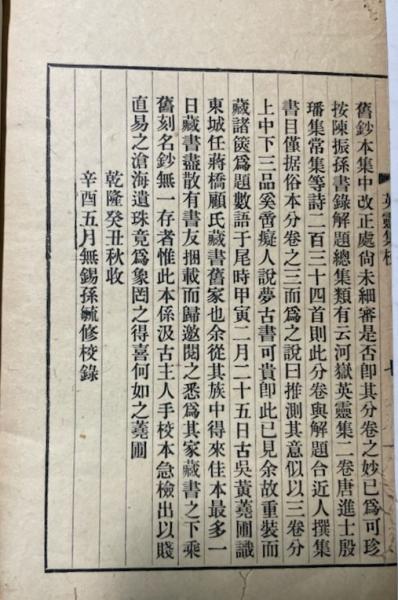 舊鈔本集中改正處尙未細審是否卽其分卷之妙已爲可珍
按陳振孫書錄解題總集類有云河嶽英靈集二卷唐進士殷
璠集常集等詩二百三十四首則此分卷與解題合近人撰集
書目僅据俗本分卷之三而爲之說曰推測其意似以三卷分
上中下三品奚啻癡人說夢古書可貴卽此已見余故重裝而
藏諸篋爲題數語于尾時甲寅二月二十五日古吳黃蕘圃識
東城任蔣橋顧氏藏書舊家也余從其族中得來佳本最多一
日藏書盡散有書友捆載而歸邀閱之悉爲其家藏書之下乘
舊刻名鈔無一存者惟此本係汲古主人手校本急檢出以賤
直易之滄海遺珠竟爲象罔之得喜何如之蕘圃
乾隆癸丑秋收
辛酉五月無錫孫毓修校錄